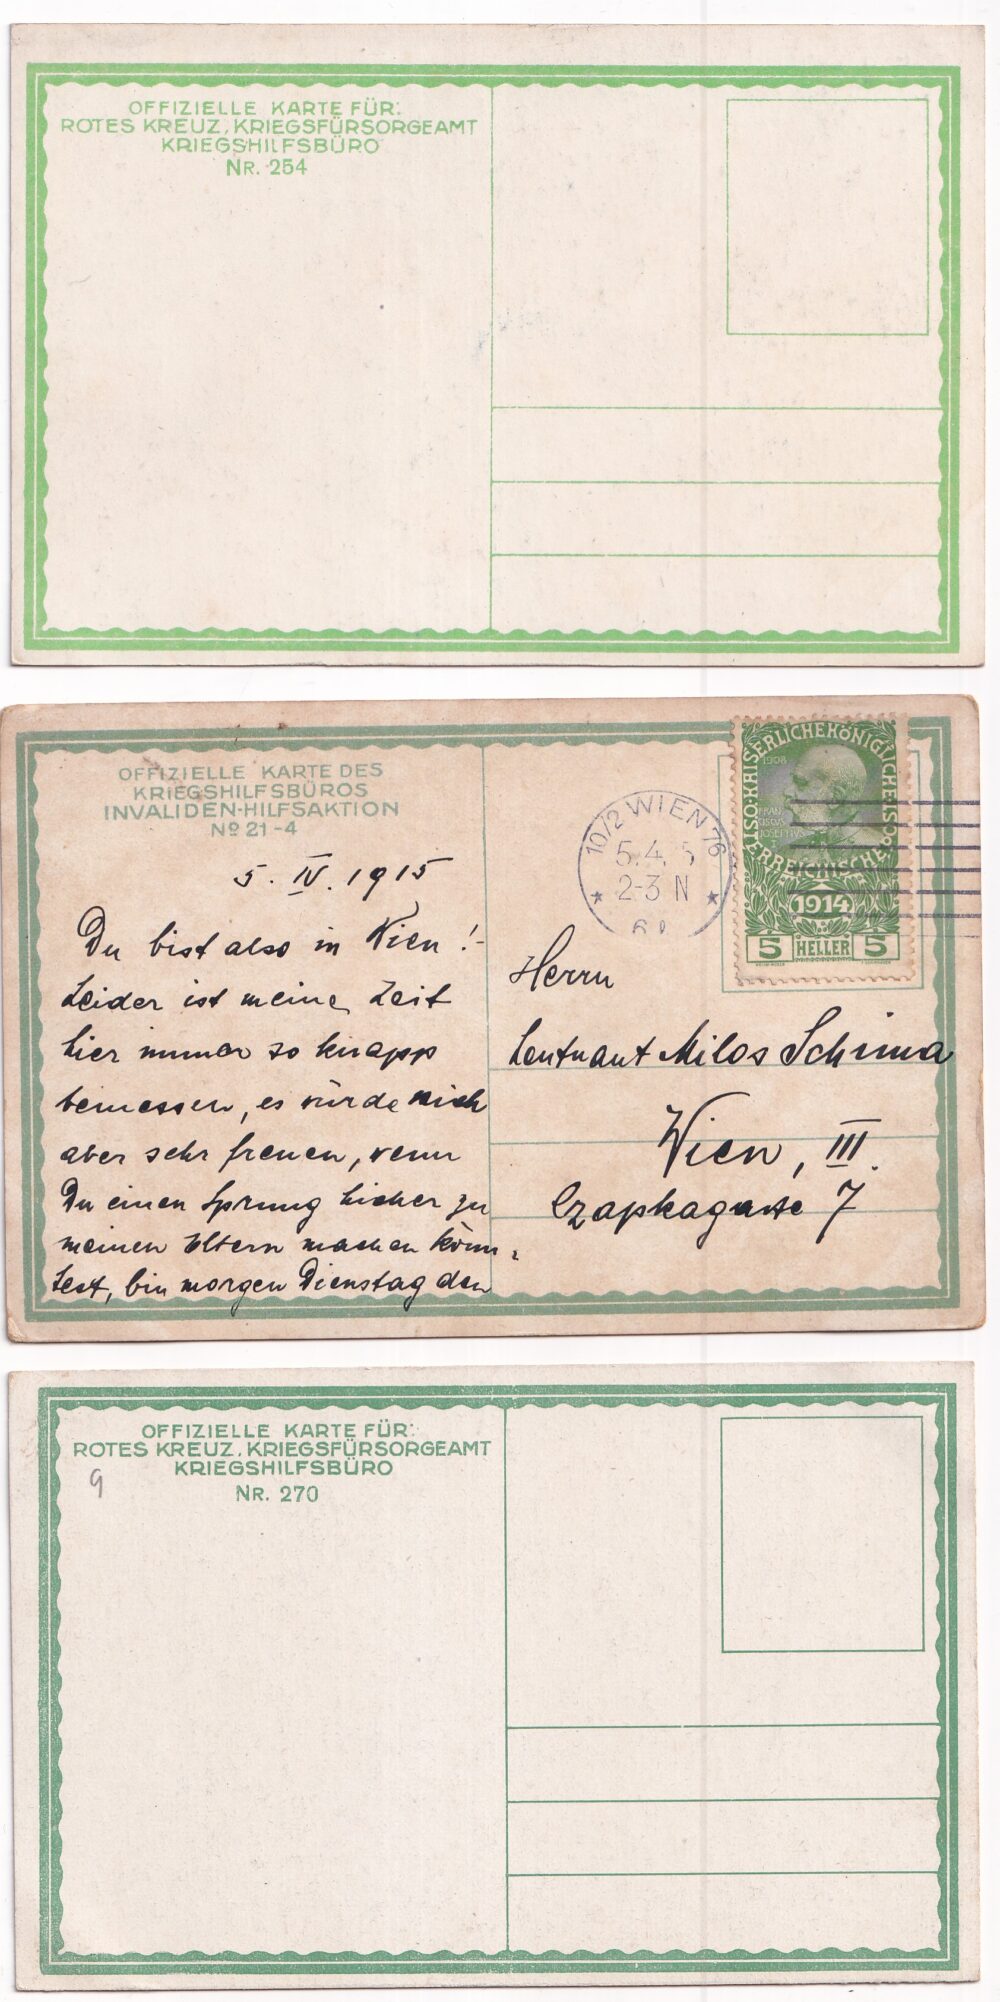 OFFIZIELLE KARTE FÜR:
ROTES KREUZ, KRIEGSFÜRSORGEAMT
KRIEGSHILFSBÜRO
NR. 254
OFFIZIELLE KARTE DES
KRIEGSHILFSBÜROS
INVALIDEN-HILFSAKTION
No 21-4
5. IV. 1915
Du bist also in Wien!-
Leider ist meine Zeit
hier immer so knapp
bemessen, es würde mich
aber sehr freuen, wenn
Du einen Sprung hieher zu
meinen Eltern machen könn-
test, bin morgen Dienstag den
10/2 WIEN 76
5.4. 5
2-3 N
KAISERLICHEKÖNIGLICHEÖSTERREICHISCHE
1908
FRAN
CISCUS
JOSEPHUS
I
1914
5 HELLER 5
Herrn
Leutnant Milos Schima
Wien, III.
Czapkagasse 7
OFFIZIELLE KARTE FÜR:
ROTES KREUZ, KRIEGSFÜRSORGEAMT
KRIEGSHILFSBÜRO
NR. 270
9